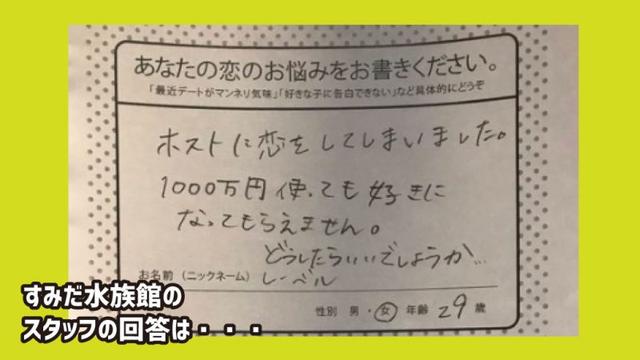 あなたの恋のお悩みをお書きください。
「最近デートがマンネリ気味」「好きな子に告白できない」など具体的にどうぞ
ホストに恋をしてしまいました。
1000万円使っても好きに
なってもらえません。
どうしたらいいでしょうか…
お名前（ニックネーム）レーベル
性別 男・女 年齢 29 歳
すみだ水族館の
スタッフの回答は・・・